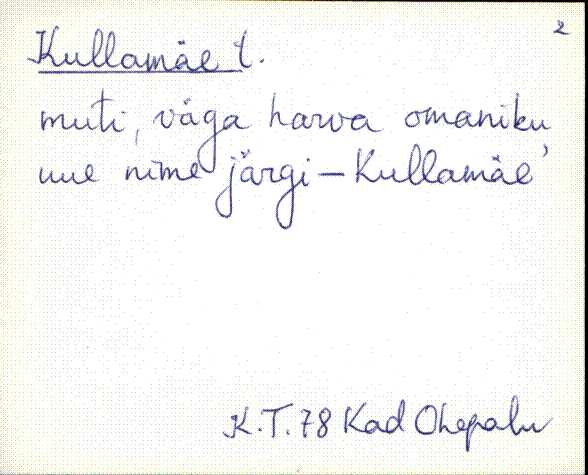 2
Kullamäe t.
muti, väga harva omaniku
uue nime järgi – Kullamäe'
K.T.78 Kad Ohepalu